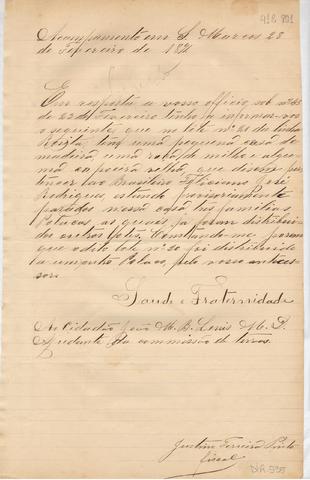 418 891
Acampamento em S. Marcos 28
de Fevereiro de 189
Em resposta a vosso officio, sob nº 65
de 22 de Fevereiro tenho a informar-vos
o seguinte que no lote nº 20 da linha
tem uma pequena casa de
madeira, uma roça de milho e algu-
ma capoeira que dis
tencer ao Brasileiro Feliciano José
Rodrigues, estando provisoriamente
parados nessa casa tres familias
Polacas as quaes ja foram distribuidas
os outros lotes, Constando-me porem
que o dito lote nº 20 foi distribuido
a um outro Polaco, pelo vosso anteces-
sor.
Saude e Fraternidade
Ao Cidadão João M. B. Lenis M. D.
Ajudante da commissão de terras.
Justino Ferreira Pinto
fiscal